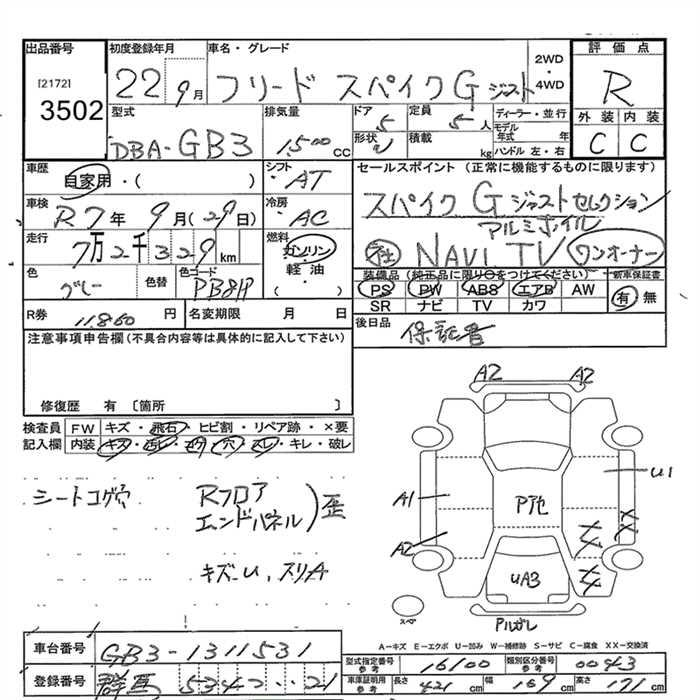 出品番号
[2172]
3502
初度登録年月
22 9月
車名・グレード
フリード スパイク G ジャスト
2WD・4WD
評価点
R
外装 内装
C C
型式
DBA-GB3
排気量
1500 CC
ドア 5
形状
定員 5人
積載 kg
ディーラー・並行
モデル年式 年
ハンドル 左・右
車歴
自家用・( )
シフト
AT
セールスポイント (正常に機能するものに限ります)
スパイク G ジャストセレクション
アルミホイル
社 NAVI TV ワンオーナー
車検
R7年 9月(29日)
冷房
AC
走行
7万2千329km
燃料
ガソリン
軽油・
( )
色
グレー
色替
色コード
PB81P
装備品 (純正品に限り○をつけてください)
新車保証書
PS PW ABS エアB AW
有 無
SR ナビ TV カワ
R券 11860 円
名変期限 月 日
後日品
保証書
注意事項申告欄(不具合内容等は具体的に記入して下さい)
修復歴 有 〔箇所 〕
検査員記入欄
FW キズ・飛石・ヒビ割・リペア跡・×要
内装 キズ・ヨゴレ・コゲ・穴・スレ・キレ・破レ
シートコゲ穴
Rフロア
エンドパネル
歪
キズ-U, スリA
A2 A2
U1
A1
Pガセ
A2
XX
XX
XX
UA3
スペ
Pルガレ
A-キズ E-エクボ U-凹み W-補修跡 S-サビ C-腐食 XX-交換済
車台番号
GB3-1311531
登録番号
群馬 5342 21
型式指定番号
参考
16100
類別区分番号
参考
0043
車庫証明用
参考
長さ 421 cm
幅 169 cm
高さ 171 cm